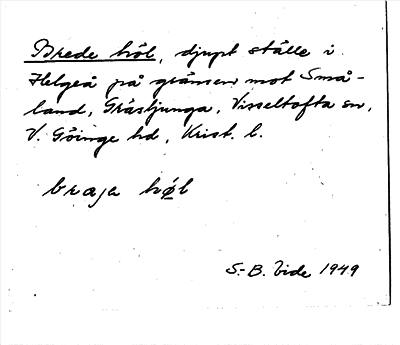 Brede höl, djupt ställe i
Helgeå på gränsen mot Små-
land, Gräshjunga, Visseltofta sn,
V. Göinge hd, Krist. l.
braja høl
S.-B. Vide 1949